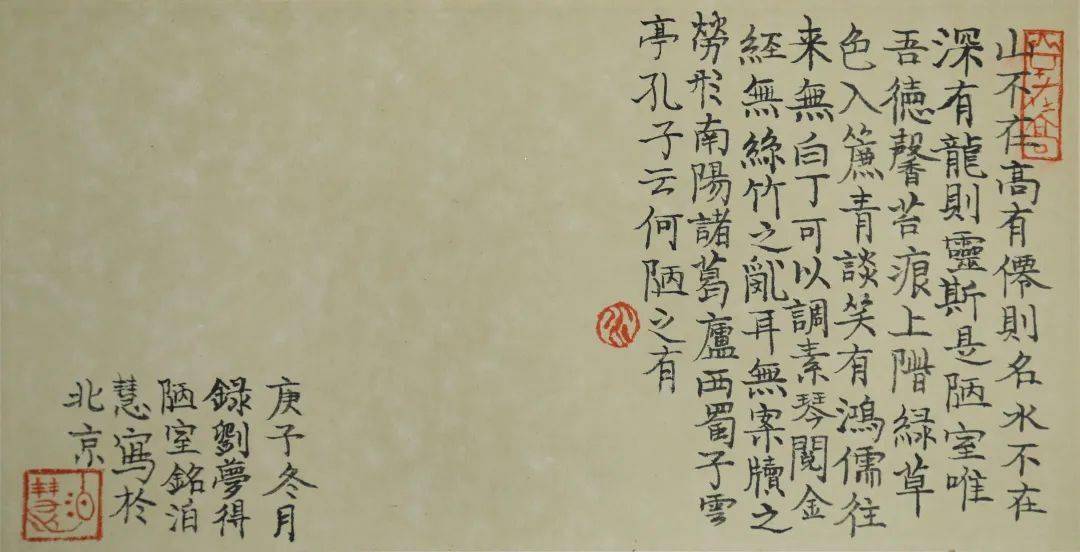 山不在高有僊則名水不在
深有龍則靈斯是陋室唯
吾徳馨苔痕上階緑草
色入簾青談笑有鴻儒往
来無白丁可以調素琴閲金
經無絲竹之亂耳無案牘之
勞形南陽諸葛廬西蜀子雲
亭孔子云何陋之有
庚子冬月
録劉夢得
陋室銘泊
慧寫於
北京
泊慧